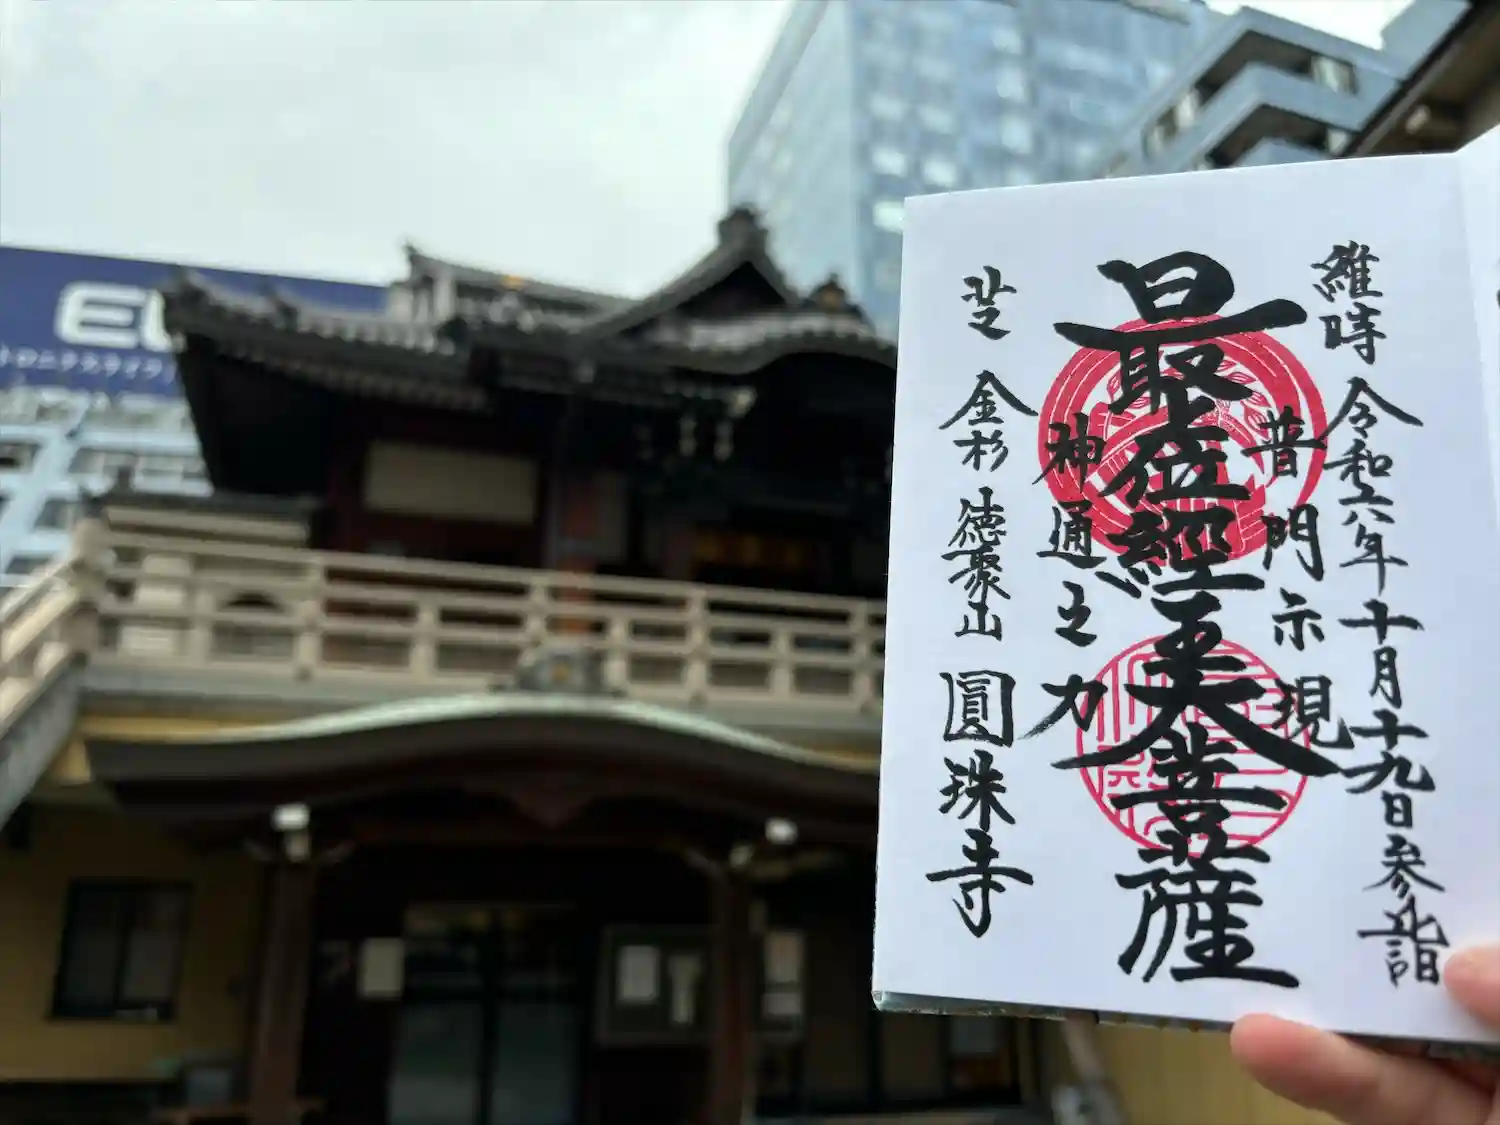 維時 令和六年十月十九日参詣
普門示現
最上位經王大菩薩
神通之力
芝 金杉 徳聚山 圓珠寺